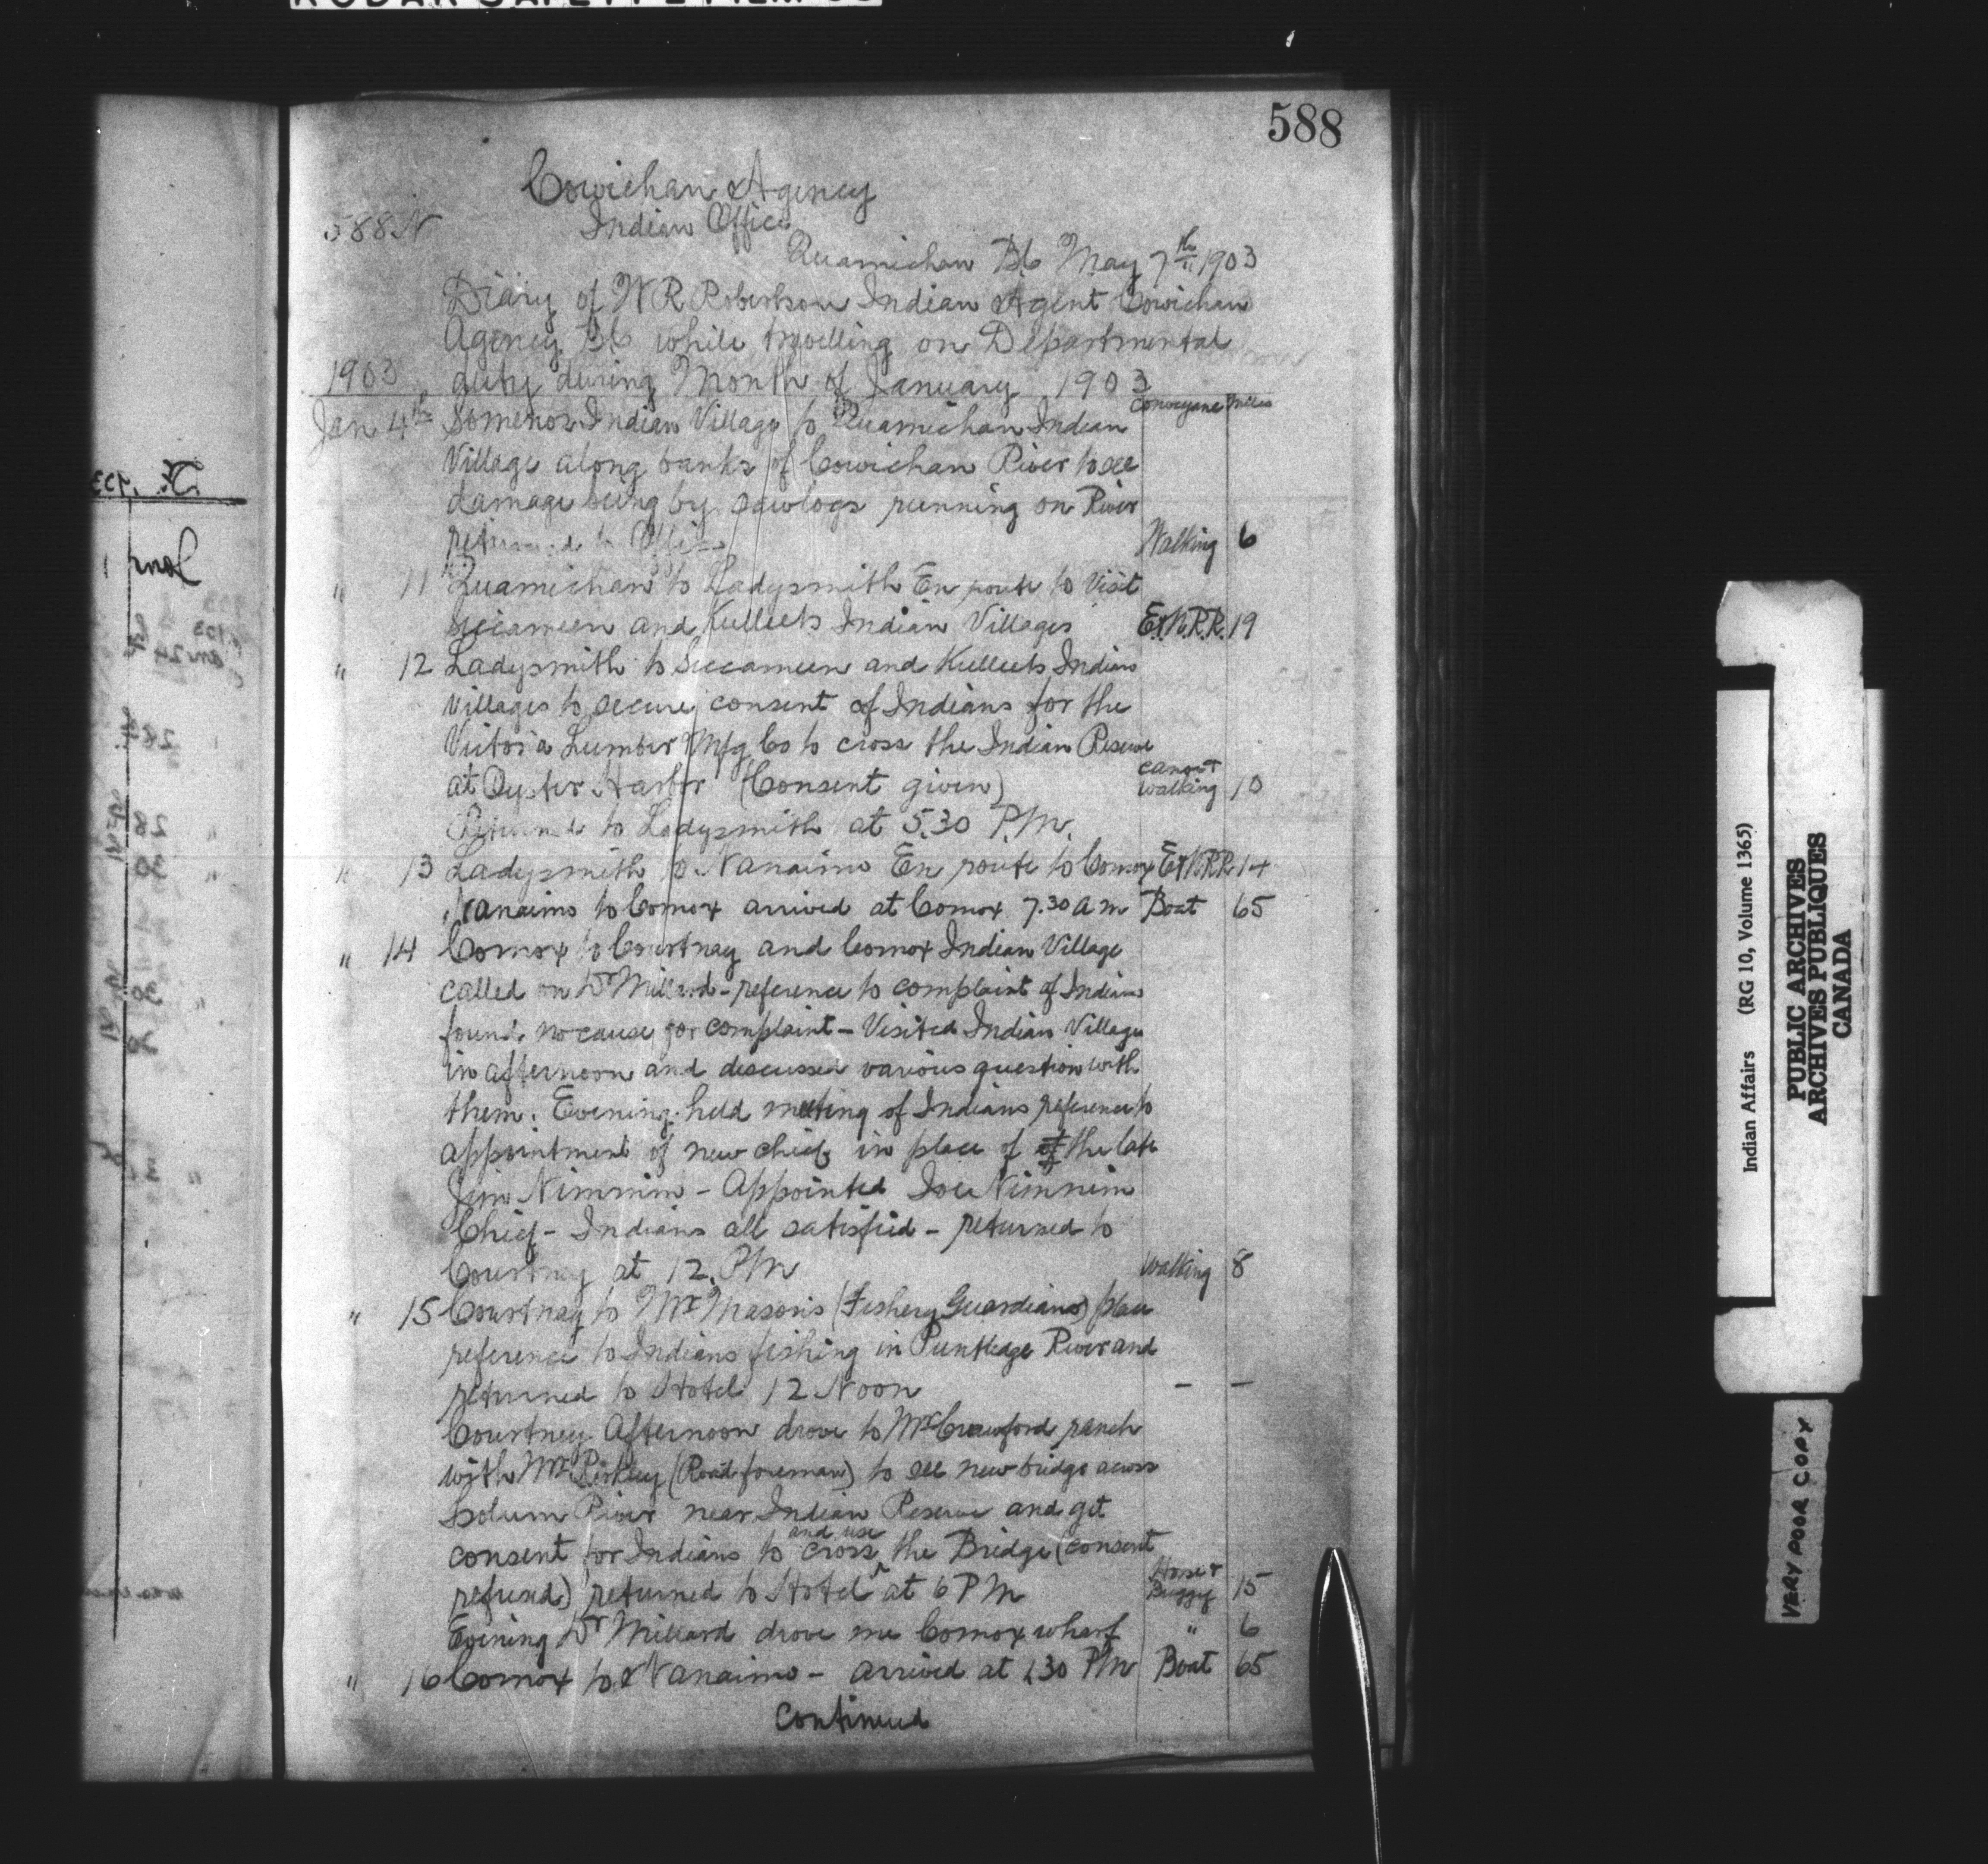 588
Cowichan Agency
588 N
Indian Office
Quamichan BC May 7th 1903
Diary of W R Robertson Indian Agent Cowichan
Agency BC while travelling on Departmental
1903 duty during Month of January 1903
Conveyane Miles
Jan 4th Somenos Indian Village to Quamichan Indian
Village along banks of Cowichan River to see
damage being by sawlogs running on River
returned to Office Walking 6
" 11 Quamichan to Ladysmith En route to Visit
Siccameen and Kulleets Indian Villages E&N.R.R. 19
" 12 Ladysmith to Siccameen and Kulleets Indian
Villages to secure consent of Indians for the
Victoria Lumber Mfg Co to cross the Indian Reserve
at Oyster Harbor (Consent given) canoe & walking 10
Returned to Ladysmith at 5.30 P.M.
" 13 Ladysmith to Nanaimo En route to Comox E&N.R.R. 14
Nanaimo to Comox arrived at Comox 7.30 a m Boat 65
" 14 Comox to Courtnay and Comox Indian Village
called on Dr Millard - reference to complaint of Indians
found no cause for complaint - Visited Indian Village
in afternoon and discussed various question with
them. Evening held meeting of Indians reference to
appointment of new chief in place of of the late
Jim Nimnim - Appointed Joe Nimnim
Chief - Indians all satisfied - returned to
Courtnay at 12. PM Walking 8
" 15 Courtnay to Mr Mason's (Fishery Guardians) place
reference to Indians fishing in Puntledge River and
returned to Hotel 12 Noon - -
Courtney Afternoon drove to Mr Crawford ranch
with Mr (Road foreman) to see new bridge across
Tsolum River near Indian Reserve and get
consent for Indians to cross and use the Bridge (consent
refused) returned to Hotel at 6 PM Horse & Buggy 15
Evening Dr Millard drove me Comox wharf " 6
" 16 Comox to Nanaimo - arrived at 1.30 PM Boat 65
Continued
Indian Affairs (RG 10, Volume 1365)
PUBLIC ARCHIVES
ARCHIVES PUBLIQUES
CANADA
VERY POOR COPY